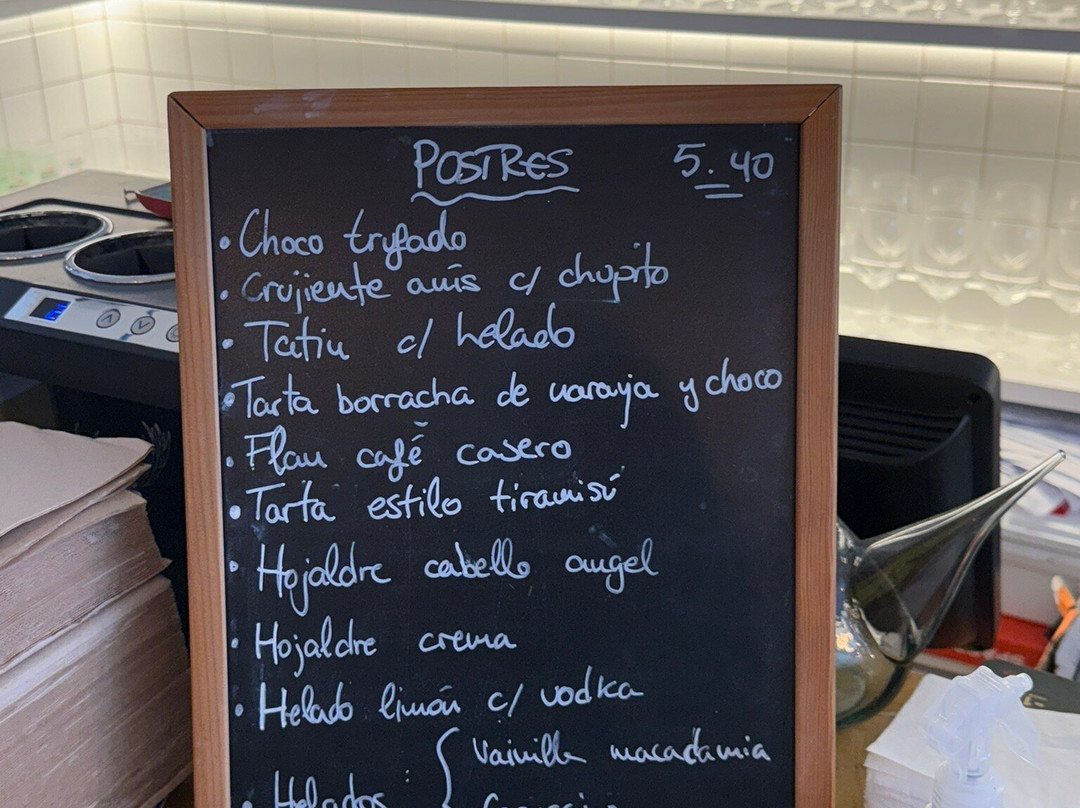 POSTRES 5.40
• Choco trufado
• Crujiente anís c/ chupito
• Tatin c/ helado
• Tarta borracha de naranja y choco
• Flan café casero
• Tarta estilo tiramisú
• Hojaldre cabello angel
• Hojaldre crema
• Helado limón c/ vodka
• Helados : { Vainilla macadamia